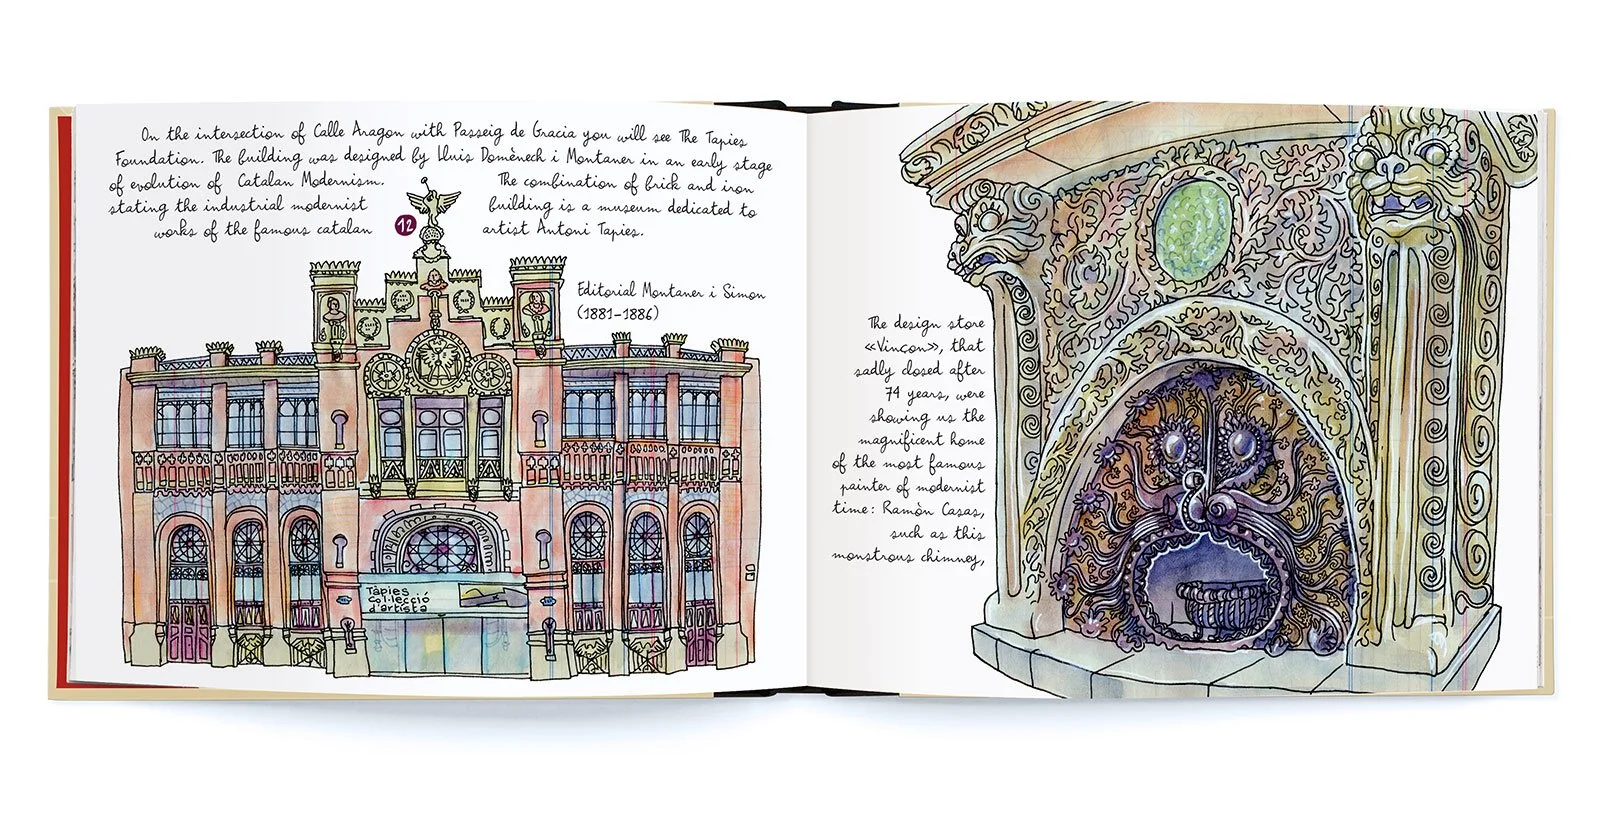 On the intersection of Calle Aragon with Passeig de Gracia you will see The Tapies
Foundation. The building was designed by Lluis Domènech i Montaner in an early stage
of evolution of Catalan Modernism.
stating the industrial modernist
works of the famous catalan
The combination of brick and iron
building is a museum dedicated to
artist Antoni Tapies.
12
Editorial Montaner i Simon
(1881-1886)
Tàpies
col·lecció
d'artista
The design store
«Vinçon», that
sadly closed after
74 years, were
showing us the
magnificent home
of the most famous
painter of modernist
time: Ramòn Casas,
such as this
monstrous chimney,